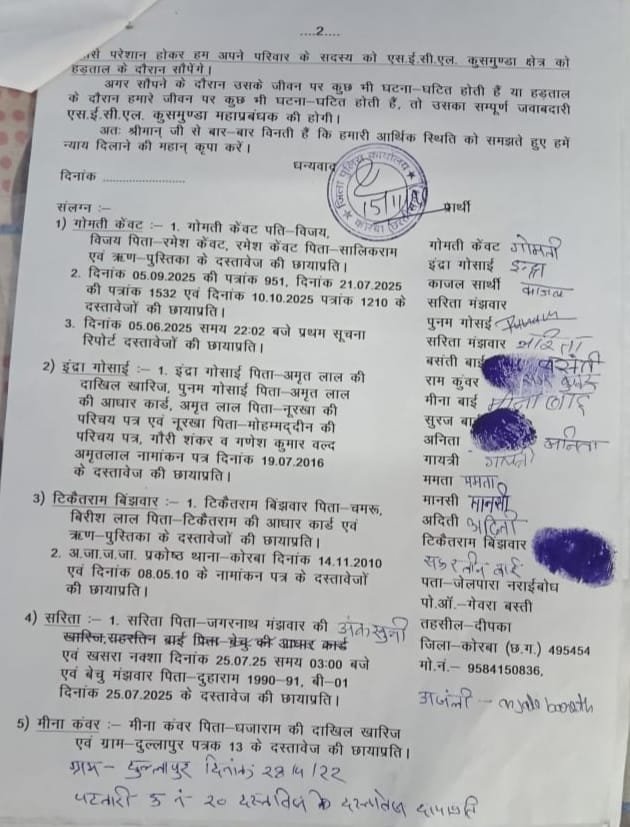 ....2....
से परेशान होकर हम अपने परिवार के सदस्य को एस.ई.सी.एल. कुसमुण्डा क्षेत्र को
हड़ताल के दौरान सौपेंगे।
अगर सौपने के दौरान उसके जीवन पर कुछ भी घटना–घटित होती हैं या हड़ताल
के दौरान हमारे जीवन पर कुछ भी घटना–घटित होती हैं, तो उसका सम्पूर्ण जवाबदारी
एस.ई.सी.एल. कुसमुण्डा महाप्रबंधक की होगी।
अतः श्रीमान् जी से बार–बार विनती हैं कि हमारी आर्थिक स्थिति को समझते हुए हमें
न्याय दिलाने की महान् कृपा करें।
धन्यवाद
जिला पुलिस कार्यालय
15/11
कोरबा
दिनांक ........................
प्रार्थी
संलग्न :–
1) गोमती केंवट :– 1. गोमती केंवट पति–विजय,
विजय पिता–रमेश केंवट, रमेश केंवट पिता–सालिकराम
एवं ऋण–पुस्तिका के दस्तावेज की छायाप्रति।
2. दिनांक 05.09.2025 की पत्रांक 951, दिनांक 21.07.2025
की पत्रांक 1532 एवं दिनांक 10.10.2025 पत्रांक 1210 के
दस्तावेजों की छायाप्रति।
3. दिनांक 05.06.2025 समय 22:02 बजे प्रथम सूचना
रिपोर्ट दस्तावेजों की छायाप्रति।
2) इंद्रा गोसाई :– 1. इंद्रा गोसाई पिता–अमृत लाल की
दाखिल खारिज, पुनम गोसाई पिता–अमृत लाल
की आधार कार्ड, अमृत लाल पिता–नूरखा की
परिचय पत्र एवं नूरखा पिता–मोहम्मददीन की
परिचय पत्र, गौरी शंकर व गणेश कुमार वल्द
अमृतलाल नामांकन पत्र दिनांक 19.07.2016
के दस्तावेज की छायाप्रति।
3) टिकैतराम बिंझवार :– 1. टिकैतराम बिंझवार पिता–चमरू,
बिरीश लाल पिता–टिकैतराम की आधार कार्ड एवं
ऋण–पुस्तिका के दस्तावेजों की छायाप्रति।
2. अ.जा.ज.जा. प्रकोष्ठ थाना–कोरबा दिनांक 14.11.2010
एवं दिनांक 08.05.10 के नामांकन पत्र के दस्तावेजों
की छायाप्रति।
4) सरिता :– 1. सरिता पिता–जगरनाथ मंझवार की अंकसुची
खारिज,सहरत्तिन बाई पिता–बेचु की आधार कार्ड
एवं खसरा नक्शा दिनांक 25.07.25 समय 03:00 बजे
एवं बेचु मंझवार पिता–दुहाराम 1990–91, बी–01
दिनांक 25.07.2025 के दस्तावेज की छायाप्रति।
5) मीना कंवर :– मीना कंवर पिता–धजाराम की दाखिल खारिज
एवं ग्राम–दुल्लापुर पत्रक 13 के दस्तावेज की छायाप्रति।
ग्राम– दुल्लापुर दिनांक 28/4/22
पटवारी ह नं 20
गोमती केंवट गोमती
इंद्रा गोसाई इन्द्रा
काजल सार्थी काजल
सरिता मंझवार
पुनम गोसई Punam
सरिता मंझवार सरिता
बसंती बाई बसंती
राम कुंवर
मीना बाई मीना बाई
सुरज बा
अनिता अनिता
गायत्री गायत्री
ममता ममता
मानसी मानसी
अदिती अदिती
टिकैतराम बिंझवार
बाई
पता–जेलपारा नराईबोध
पो.ऑ.–गेवरा बस्ती
तहसील–दीपका
जिला–कोरबा (छ.ग.) 495454
मो.नं.– 9584150836,
अजंली –